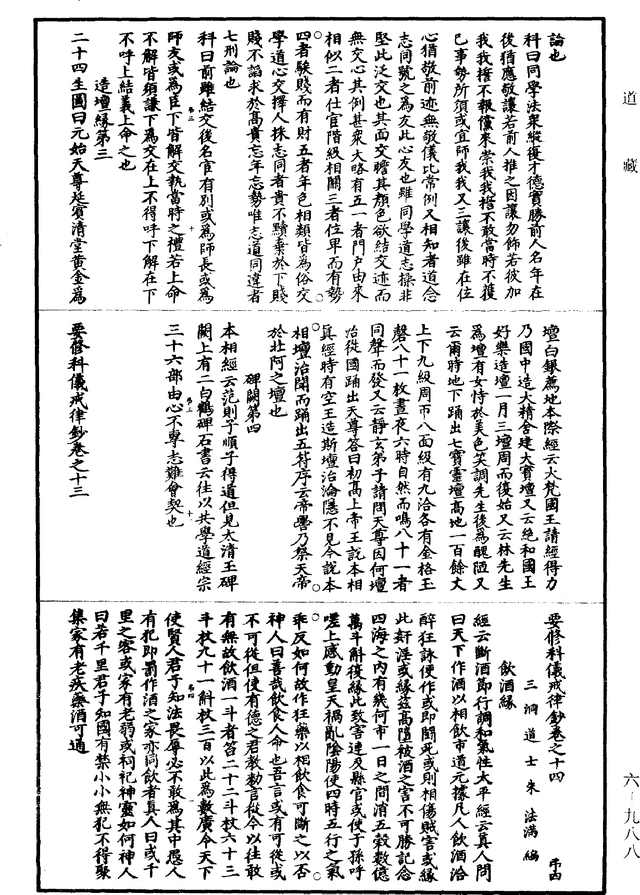 道藏
論也
科曰同學法衆縱復才德實勝前人名年在
後猶應敬讓若前人推之因讓勿飾若彼加
我我擔不報儻來崇我我擔不敢當時不獲
已事勢所須或宜師我我又三讓後雖在位
心猶敬前迹無敬儀比常例又相知者道念
志同號之為友此心友也雖同學道志操非
堅此泛交也其面交瞻其顏色欲結交迹而
無交心其例甚衆大略有五一者門户由來
相似二者仕官階級相關三者位卑而有勢
四者賤而有財五者年色相類皆為俗交
學道心交擇人揀志同者貴不驕棄於下賤
賤不諂求於高貴忘年忘勢唯志道同違者
七刑論也
科曰前雖結交後名官有別或為師長或為
師友或為臣下皆解交執當時之禮若上命
不解皆須謙下為交在上不得呼下解在下
不呼上結義上命之也
造壇緣第三
二十四生圖曰元始天尊延賓清堂黄金為
壇白銀薦地本際經云火梵國王請經得力
乃國中造大精舍建大寶壇又云絶和國王
好樂造壇一月三壇周而復始又云林先生
為壇有女恃於美色笑調先生後為醜陋又
云爾時地下踊出七寶靈壇高地一百餘丈
上下九級周帀八面級有九洽各有金格玉
磬八十一枚晝夜六時自然而鳴八十一者
同聲而發又云靜玄弟子請問天尊因何壇
治從國踊出天尊答曰初高上帝王說本相
真經時有空王造斯壇治淪隱不見今說本
相壇治聞而踊出五符序云帝嚳乃祭天帝
於北阿之壇也
碑闕第四
本相經云范則子順子得道但見太清王碑
闕上有二白鶴碑石書云往以共學道經宗
三十六部由心不專志難會契也
要修科儀戒律鈔卷之十三
要修科儀戒律鈔卷之十四
三洞道士朱法滿編
飲酒緣
經云斷酒即行調和氣性太平經云真人問
曰天下作酒以相飲市道元據凡人飲酒洽
醉狂詠便作或即鬭死或則相傷賊害或緣
此奸淫或緣茲高墮被酒之害不可勝記念
四海之內有幾何市一日之間消五榖數億
萬斗斛復緣此致害連及縣官或使子孫呼
嗟上感動皇天禍亂陰陽使四時五行之氣
乖反如何故作狂藥以相飲食可斷之以否
神人曰善哉飲食人命也吾言或有可從或
不可從但使有德之君教勑言從今以往敢
有無故飲酒一斗者笞二十二斗杖六十三
斗杖九十一斛杖三百以此為數廣令天下
使賢人君子知法畏辱必不敢為其中愚人
有犯即罰作酒之家亦同飲者真人曰或千
里之客或家有老弱或祠祀神靈如何神人
曰若千里君子知國有禁小小無犯不得聚
集家有老疾藥酒可通
六-九八八